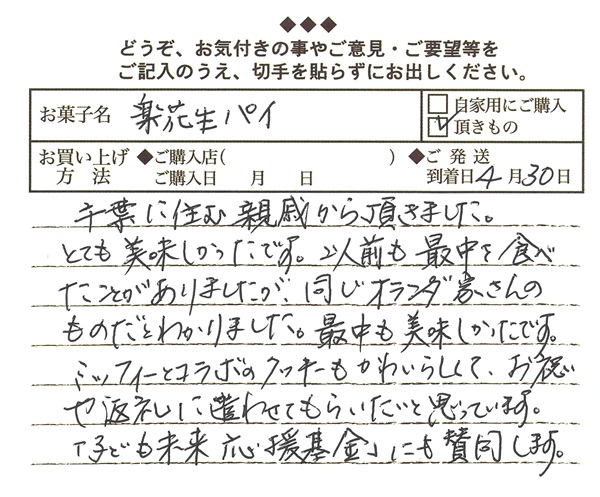 ◆◆◆
どうぞ、お気付きの事やご意見・ご要望等を
ご記入のうえ、切手を貼らずにお出しください。
お菓子名 楽花生パイ □自家用にご購入
☑頂きもの
お買い上げ方法 ◆ご購入店( ) ◆ご発送
ご購入日 月 日 到着日4月30日
千葉に住む親戚から頂きました。
とても美味しかったです。以前も最中を食べ
たことがありましたが、同じオランダ家さんの
ものだとわかりました。最中も美味しかったです。
ミッフィーとコラボのクッキーもかわいらしくて、お祝い
や返礼に遣わせてもらいたいと思っています。
「子ども未来応援基金」にも賛同します。